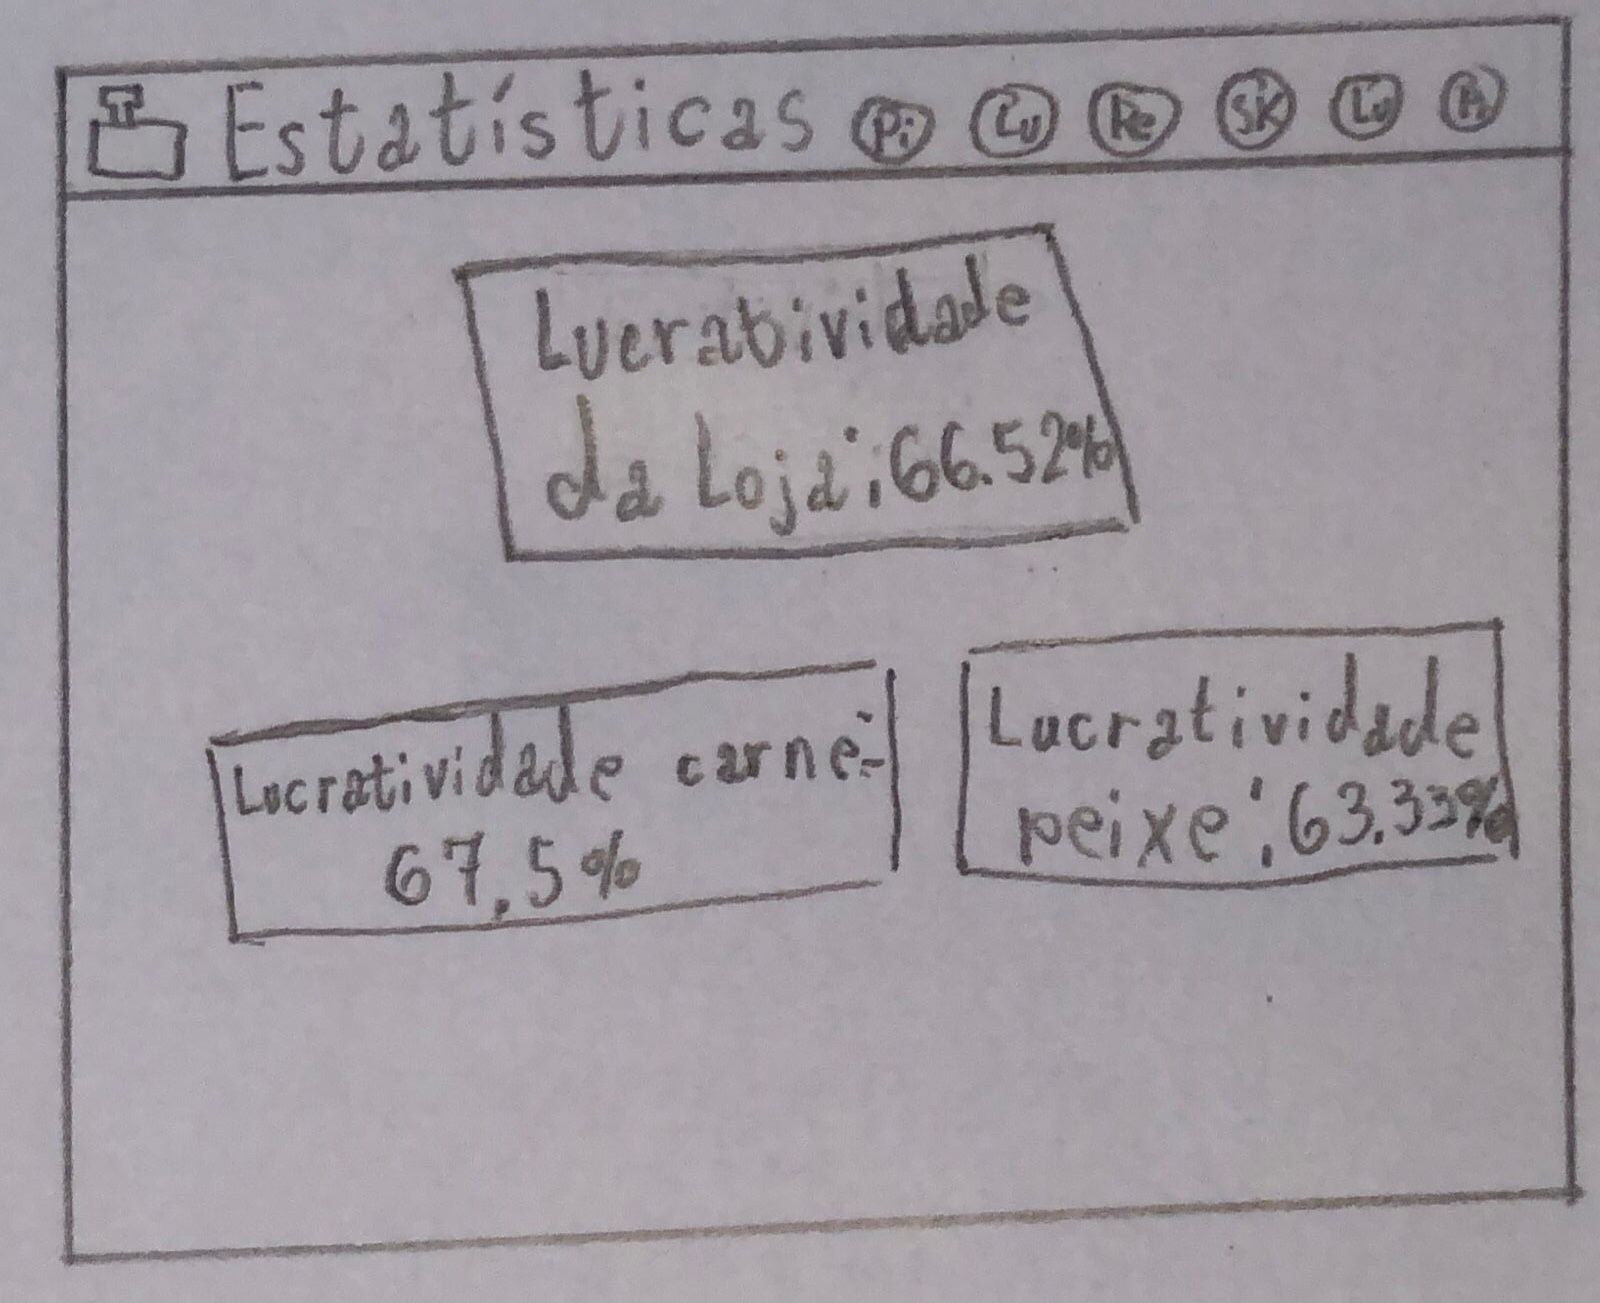 Estatísticas Pi Lu Re SK Lu
Lucratividade
da Loja: 66.52%
Lucratividade carne:
67,5%
Lucratividade
peixe: 63.33%